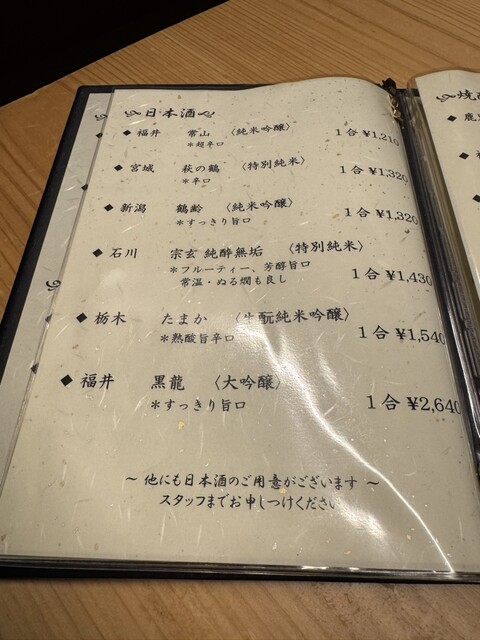 日本酒
◆ 福井 常山 〈純米吟醸〉 1合 ¥1,210
＊超辛口
◆ 宮城 萩の鶴 〈特別純米〉 1合 ¥1,320
＊辛口
◆ 新潟 鶴齢 〈純米吟醸〉 1合 ¥1,320
＊すっきり旨口
◆ 石川 宗玄 純酔無垢 〈特別純米〉 1合 ¥1,430
＊フルーティー、芳醇旨口
常温・ぬる燗も良し
◆ 栃木 たまか 〈生酛純米吟醸〉 1合 ¥1,540
＊熟酸旨辛口
◆ 福井 黒龍 〈大吟醸〉 1合 ¥2,640
＊すっきり旨口
～ 他にも日本酒のご用意がございます ～
スタッフまでお申しつけください
焼
鹿